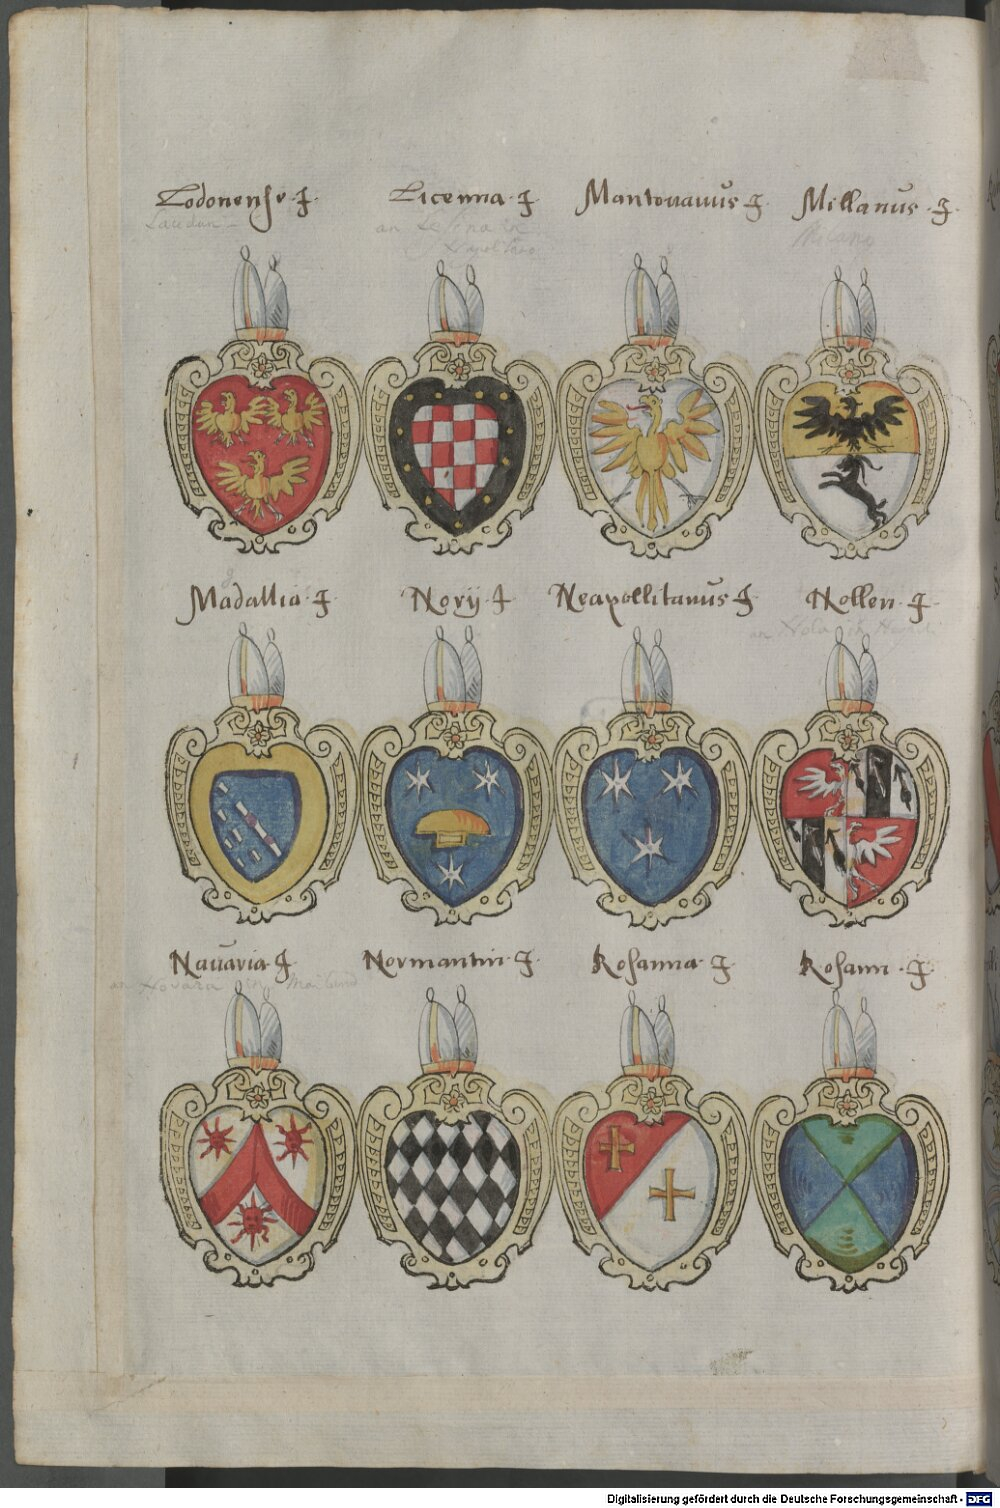 Lodonense
Licenna
Mantouanus
Millanus
Milano
Madallia
Novÿ
Neapollitanus
Nollen
an Nola
Nauaria
Normantin
Rosanna
Rosann
an Novara in Mailand
Digitalisierung gefördert durch die Deutsche Forschungsgemeinschaft - DFG